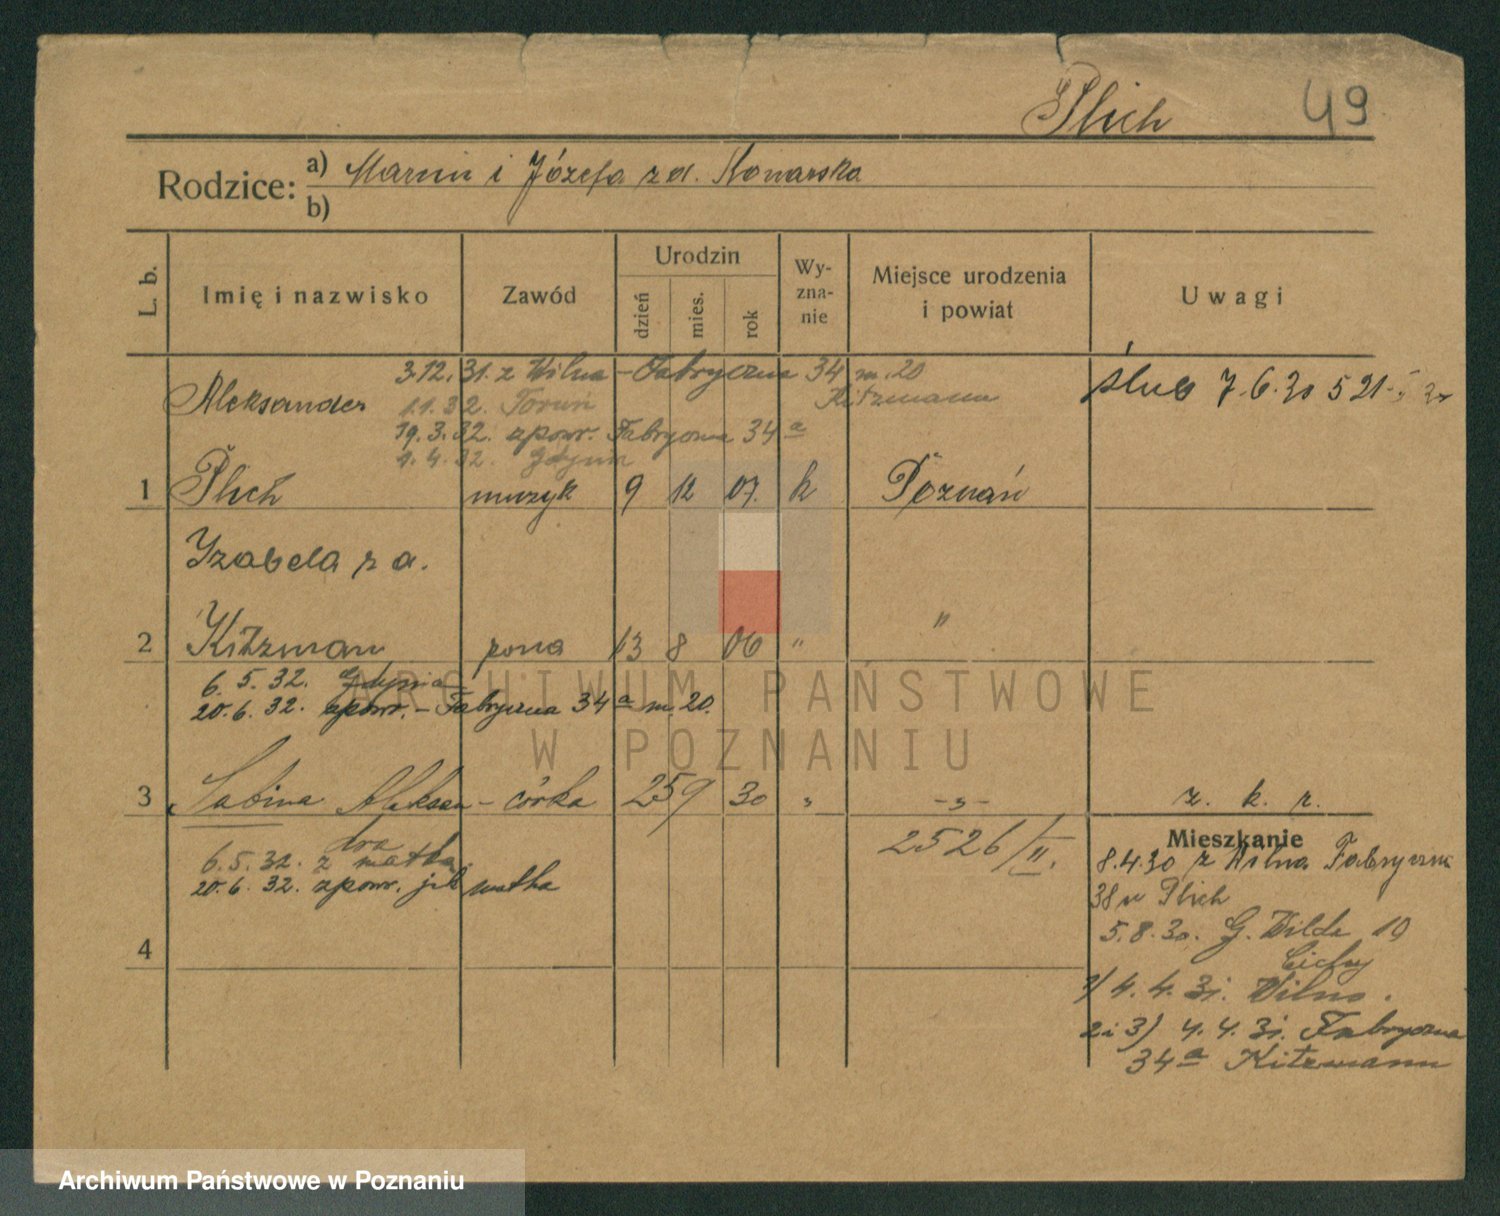 Plich 49
Rodzice: a) Marcin i Józefa z d. Konarska
b)
L. b. Imię i nazwisko Zawód Urodzin dzień mies. rok Wy-zna-nie Miejsce urodzenia i powiat Uwagi
3.12.31. z Wilna – Fabryczna 34 m. 20
Kitzmann
Aleksander 1.1.32. Toruń ślub 7.6.30 521
19.3.32. zpowr. Fabryczna 34 a
1.4.32. Gdynia
1 Plich muzyk 9 12 07. k Poznań
Izabela z d.
2 Kitzman żona 13 8 06 " "
6.5.32. Gdynia
20.6.32. zpowr. – Fabryczna 34 a m. 20.
ARCHIWUM PAŃSTWOWE
W POZNANIU
3 Sabina Aleksan- córka 25 9 30 " -"- z. k. r.
dra
2526/II. Mieszkanie
6.5.32. z matką. 8.4.30 z Wilna Fabryczna
20.6.32. zpowr. jak matka 38 u Plich
5.8.30. G. Wilda 19
4 Cichy
1/ 4.4.31. Wilno.
2 i 3) 4.4.31. Fabryczna
34 a Kitzmann
Archiwum Państwowe w Poznaniu